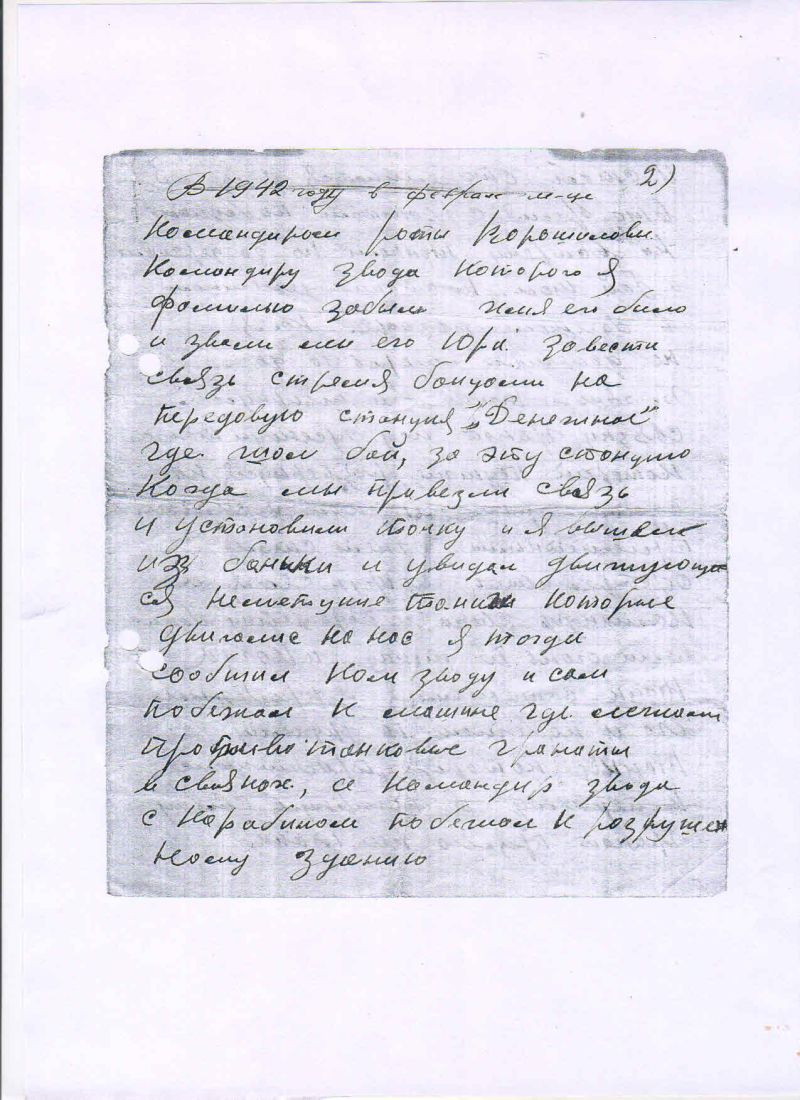 2)
В 1942 году в феврале м-це
Командиром роты Ворошилови
Командиру звода которого я
фамилью забыл имя его было
и звали мы его Юра завести
связь стремя бойцами на
передовую станция „Денежное"
где шол бой, за эту станцию
Когда мы привезли связь
и установили точку и я вышел
из баньки и увидал движующи
ся неметцкие танки которые
двигались на нас я тогда
сообщил ком зводу и сам
побежал к машине где лежали
противотанковые гранаты
в связках, а командир звода
с карабином побежал к разрушен
ному зданию